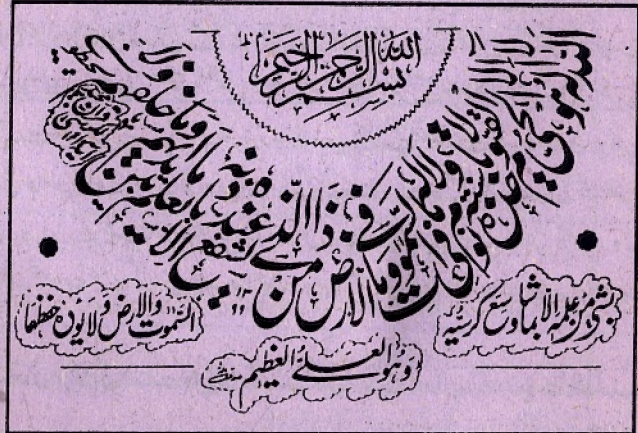 بسم الله الرحمن الرحيم
الله لا اله الا هو الحي القيوم لا تاخذه سنة ولا نوم له ما في السموت وما في الارض من ذا الذي يشفع عنده الا باذنه يعلم ما بين ايديهم وما خلفهم ولا يحيطون
بشئ من علمه الا بما شاء وسع كرسيه
السموت والارض ولا يؤده حفظهما
وهو العلي العظيم